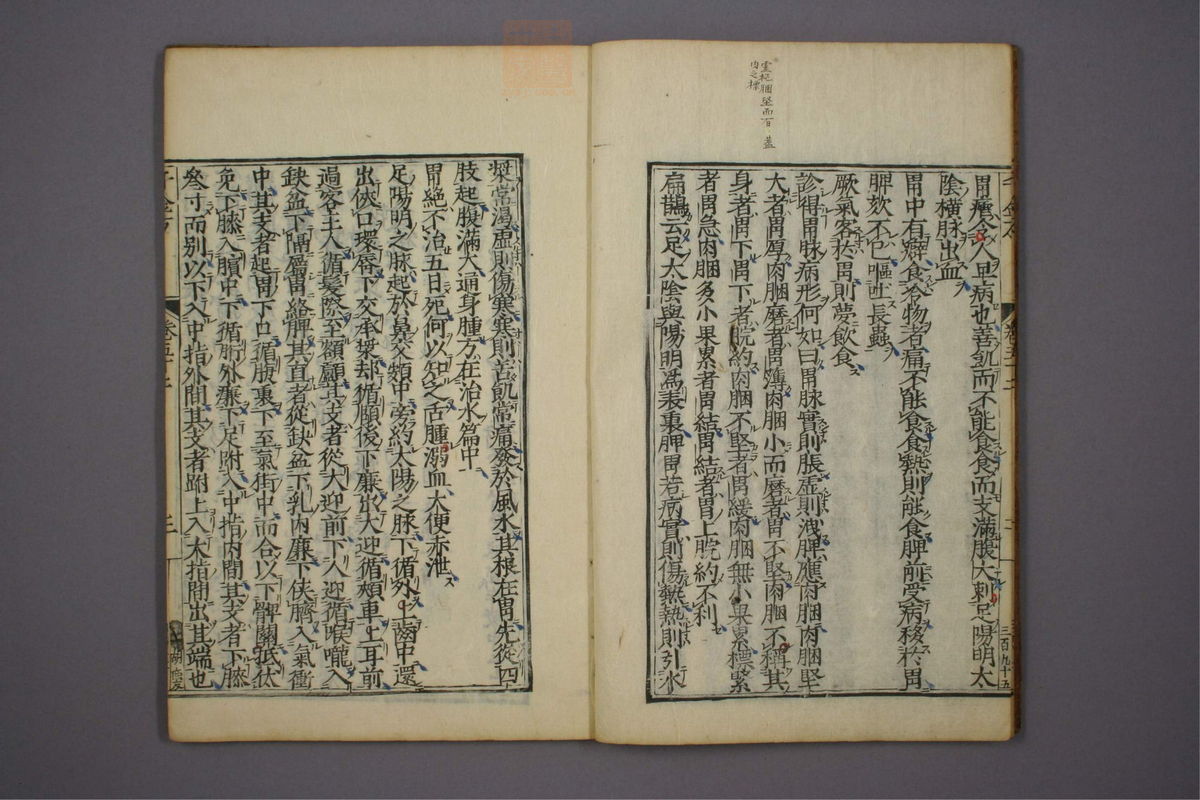 胃瘧令人旦病也善飢而不能食食而支滿腹大刺足陽明太
陰橫脉出血
胃中有癖食冷物者痛不能食食熱則能食脾前受病移於胃
脾欬不已嘔吐長蟲
厥氣客於胃則夢飲食
診得胃脉病形何如曰胃脉實則脹虛則洩脾應肉䐃肉䐃堅
大者胃厚肉䐃磨者胃薄肉䐃小而磨者胃不堅肉䐃不稱其
身者胃下胃下者脘約肉䐃不堅者胃緩肉䐃無小果累標緊
者胃急肉䐃多小果累者胃結胃結者胃上脘約不利
扁鵲云足太陰與陽明爲表裏脾胃若病實則傷熱熱則引水
漿常渴虛則傷寒寒則苦飢常痛發於風水其根在胃先從四
肢起腹滿大通身腫方在治水篇中
胃絕不治五日死何以知之舌腫溺血大便赤泄
足陽明之脉起於鼻交頞中旁約太陽之脉下循外上齒中還
出俠口環唇下交承漿却循頤後下廉出大迎循頰車上耳前
過客主人循髮際至額顱其支者從大迎前下人迎循喉嚨入
鈌盆下隔屬胃絡脾其直者從鈌盆下乳內廉下俠臍入氣衝
中其支者起胃下口循腹裏下至氣街中而合以下髀關抵伏
兔下膝入臏中下循胻外廉下足附入中指內間其支者下膝
叄寸而别以下入中指外間其支者跗上入大指間出其端也
卷五十二
三百九十五